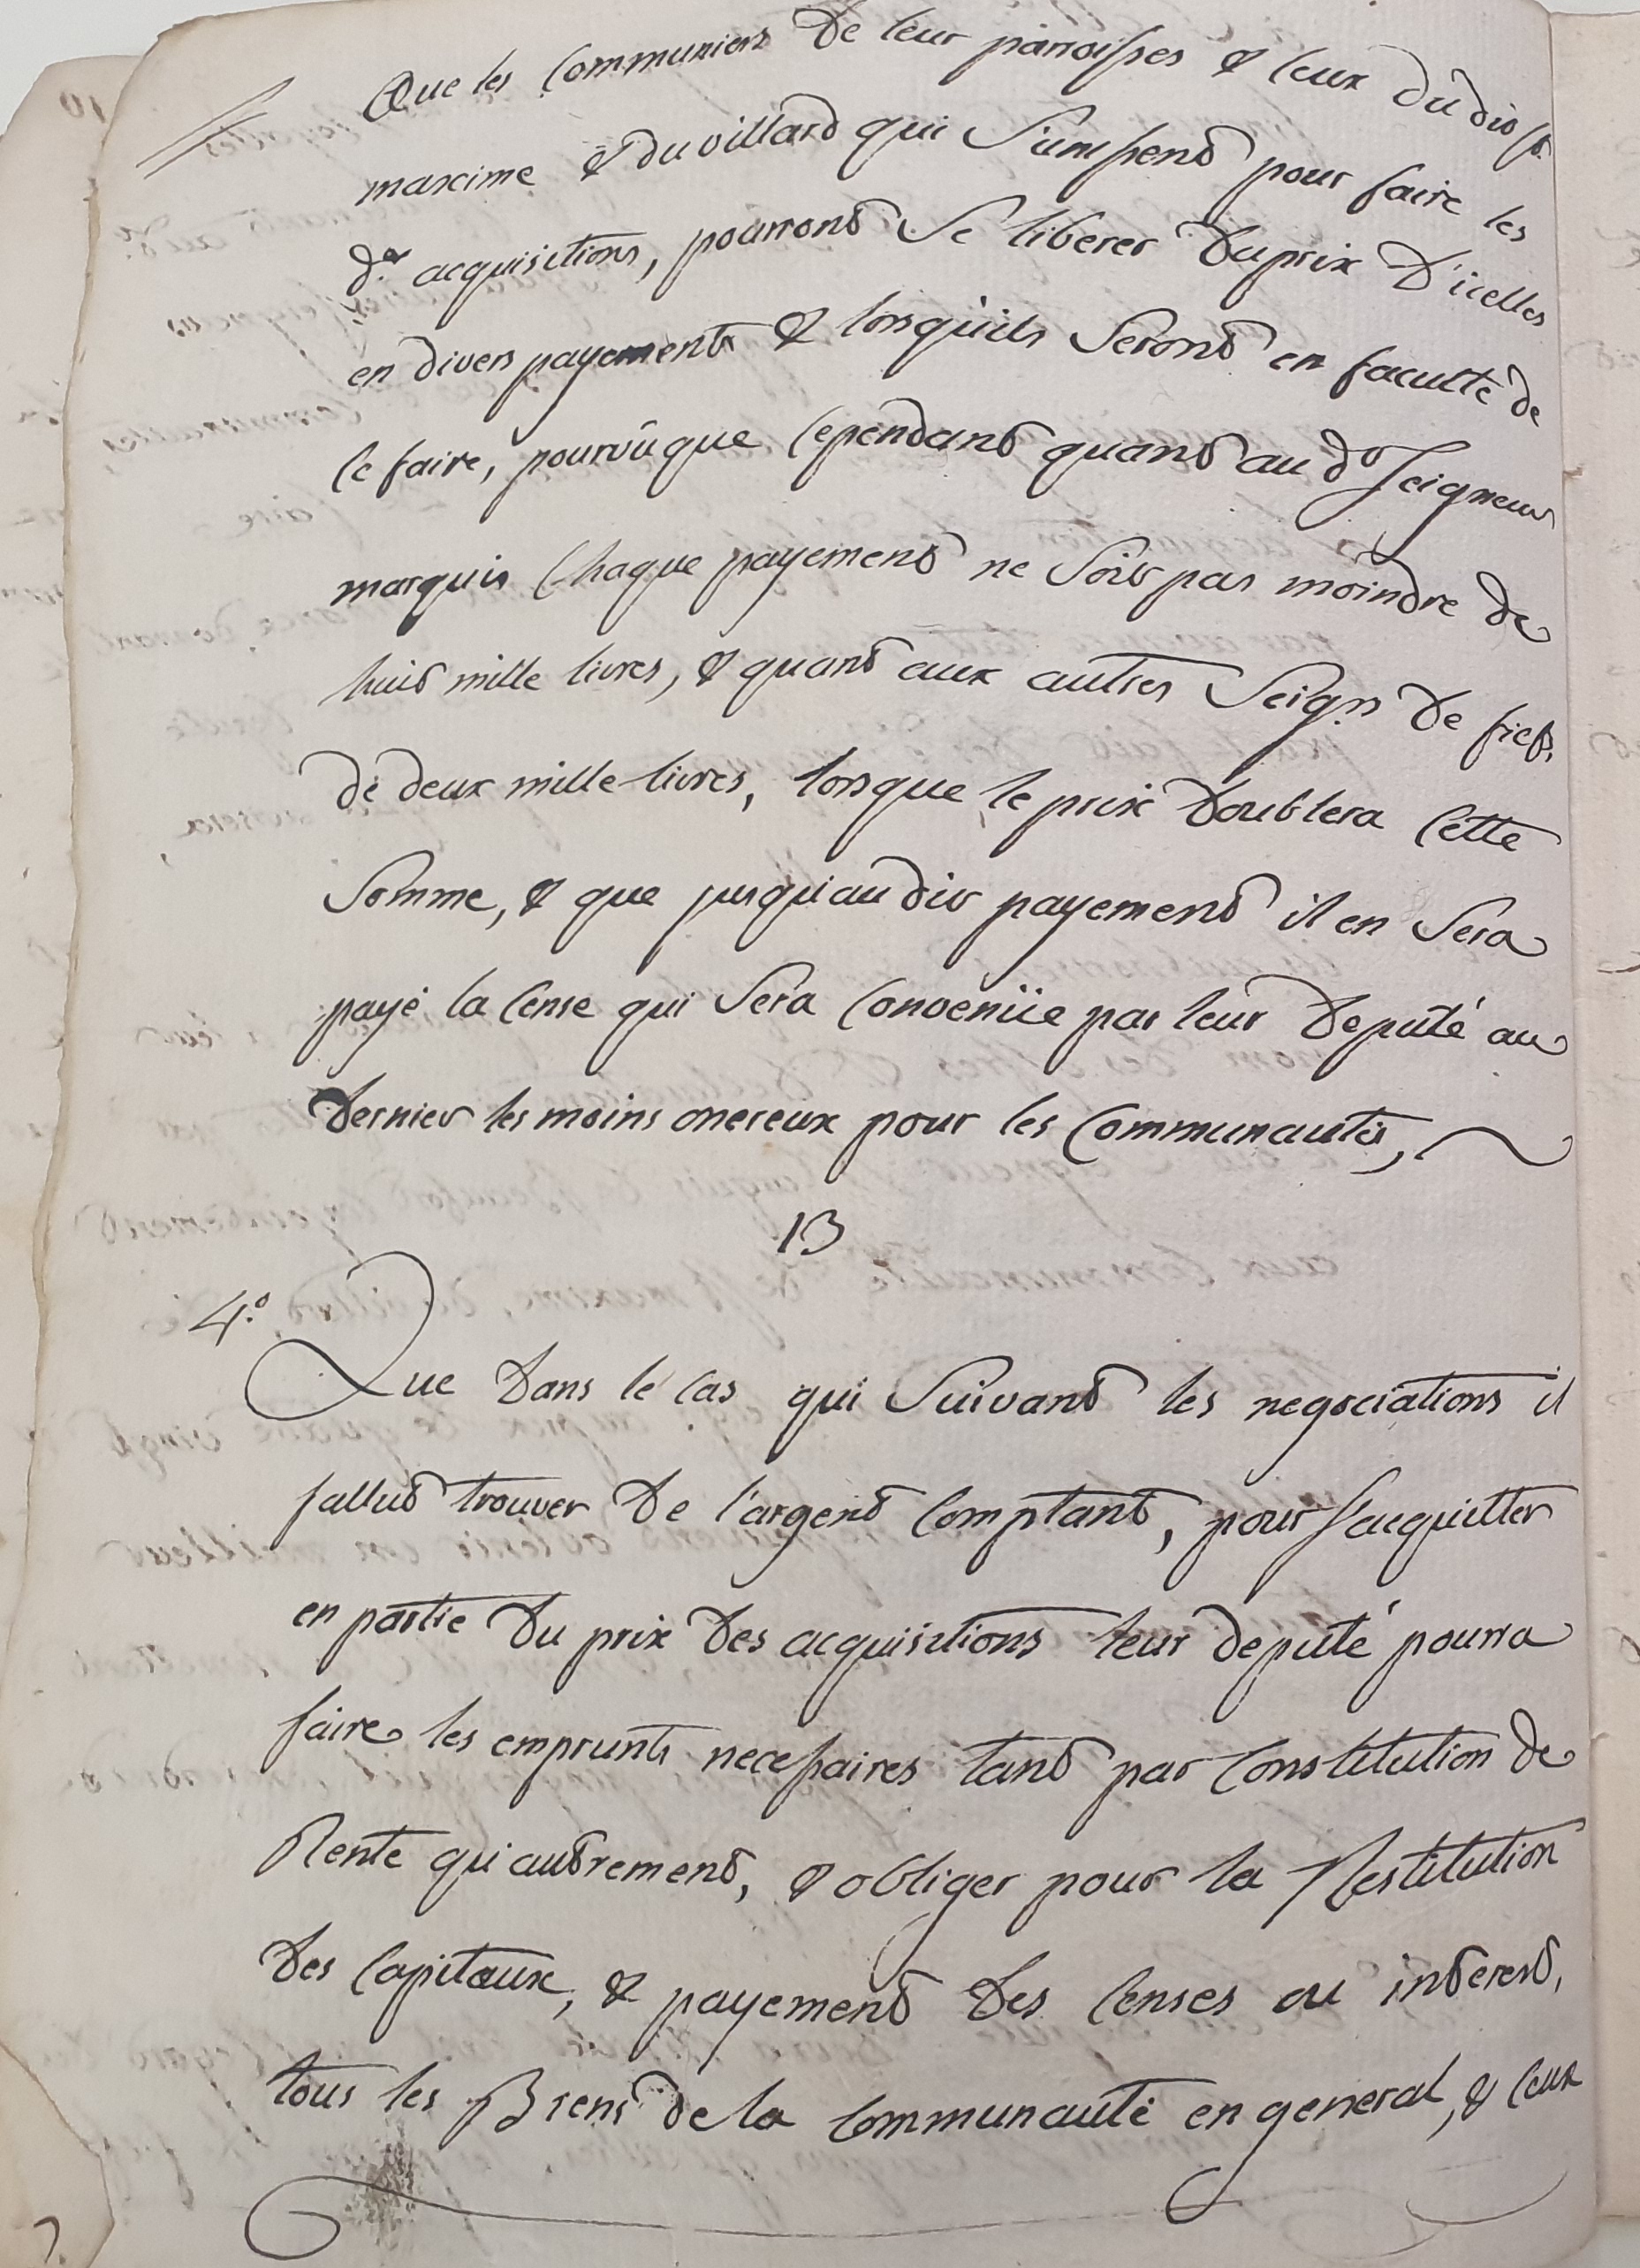 Que les Communiers de leur parroisses & Ceux dudit St
maxime & du villard qui S'unissent pour faire les
d.es acquisitions, pourront Se liberer du prix d'icelles
en divers payements & lorsqu'ils Seront en faculté de
le faire, pourvûque Cependant quant au d.t Seigneur
marquis Chaque payement ne Soit pas moindre de
huit mille livres, & quant aux autres Seig.rs de fiefs
de deux mille livres, lorsque le prix doublera Cette
Somme, & que jusqu'audit payement il en Sera
payé la Cense qui Sera Convenüe par leur Deputé au
dernier les moins onereux pour les Communautés,
13
4.o
Que dans le Cas qui Suivant les negociations il
fallut trouver de l'argent Comptant, pour S'acquitter
en partie du prix des acquisitions leur deputé pourra
faire les emprunts necessaires tant par Constitution de
Rente qu'autrement, & obliger pour la Restitution
des Capitaux, & payement des Censes ou interest,
tous les Biens de la Communauté en general, & Ceux